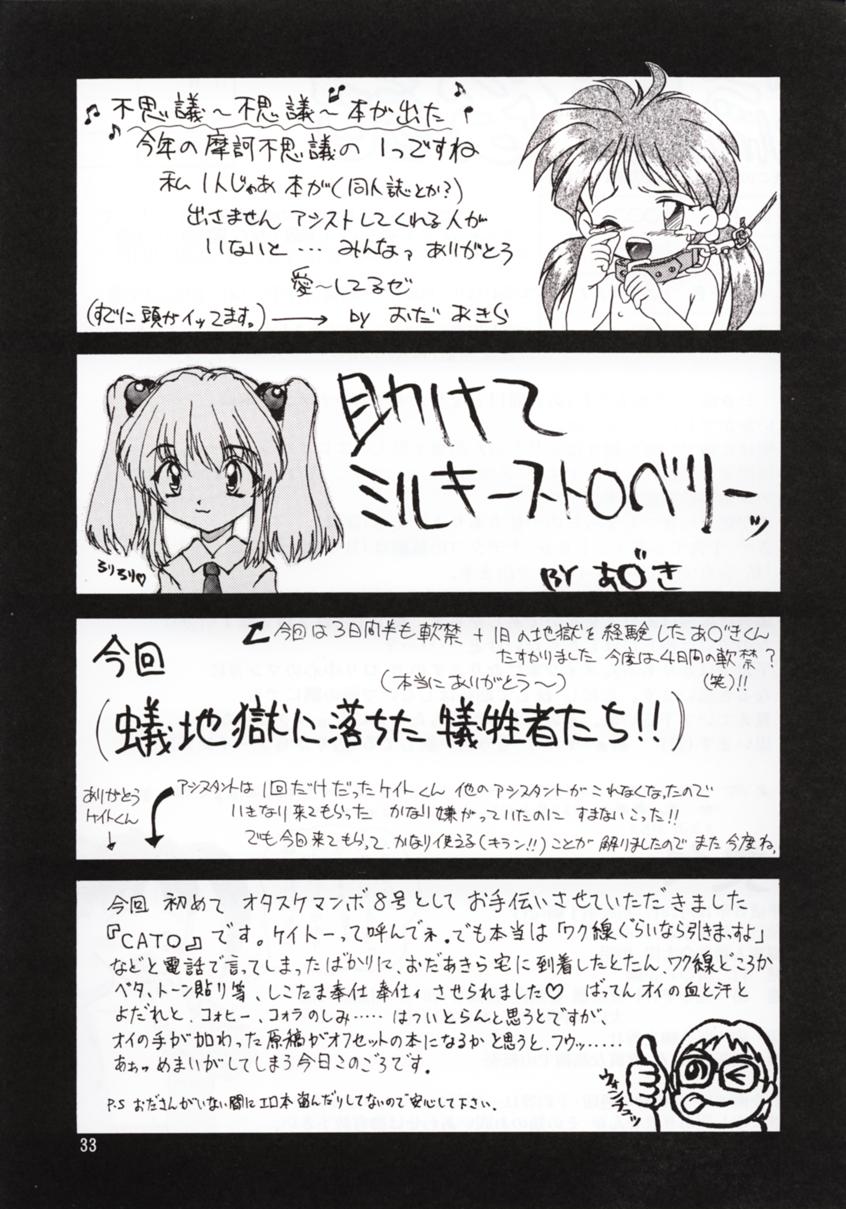 ♪不思議～不思議～本が出た♪
今年の摩訶不思議の1つですね
私1人じゃあ本が(同人誌とか?)
出さません アシストしてくれる人が
いないと…みんなァありがとう
愛～してるゼ
(すでに頭がイッてます。)→ by おだ あきら
助けて
ミルキーストロベリーッ
ろりろり♡
BY あ○き
今回は3日間半も軟禁+1日の地獄を経験したあ○きくん
たすかりました 今度は4日間の軟禁?
(本当にありがとう～)
(笑)!!
今回
(蟻地獄に落ちた犠牲者たち!!)
ありがとう
ケイトくん
アシスタントは1回だけだったケイトくん 他のアシスタントがこれなくなったので
いきなり来てもらった かなり嫌がっていたのに すまないこった!!
でも今回来てもらって、かなり使える(キラン!!)ことが解りましたので また今度ね。
今回 初めて オタスケマンボ8号として お手伝いさせていただきました
『CATO』です。ケイトーって呼んでネ。でも本当は「ワク線ぐらいなら引きまっすよ」
などと電話で言ってしまったばかりに、おだあきら宅に到着したとたん、ワク線どころか
ベタ、トーン貼り等、しこたま奉仕奉仕ィさせられました♡ ばってんオイの血と汗と
よだれと、コォヒー、コォラのしみ……はついとらんと思うとですが、
オイの手が加わった原稿がオフセットの本になるかと思うと、フウッ……
あぁッめまいがしてしまう今日このごろです。
P.S おださんがいない間にエロ本盗んだりしてないので安心して下さい。
33